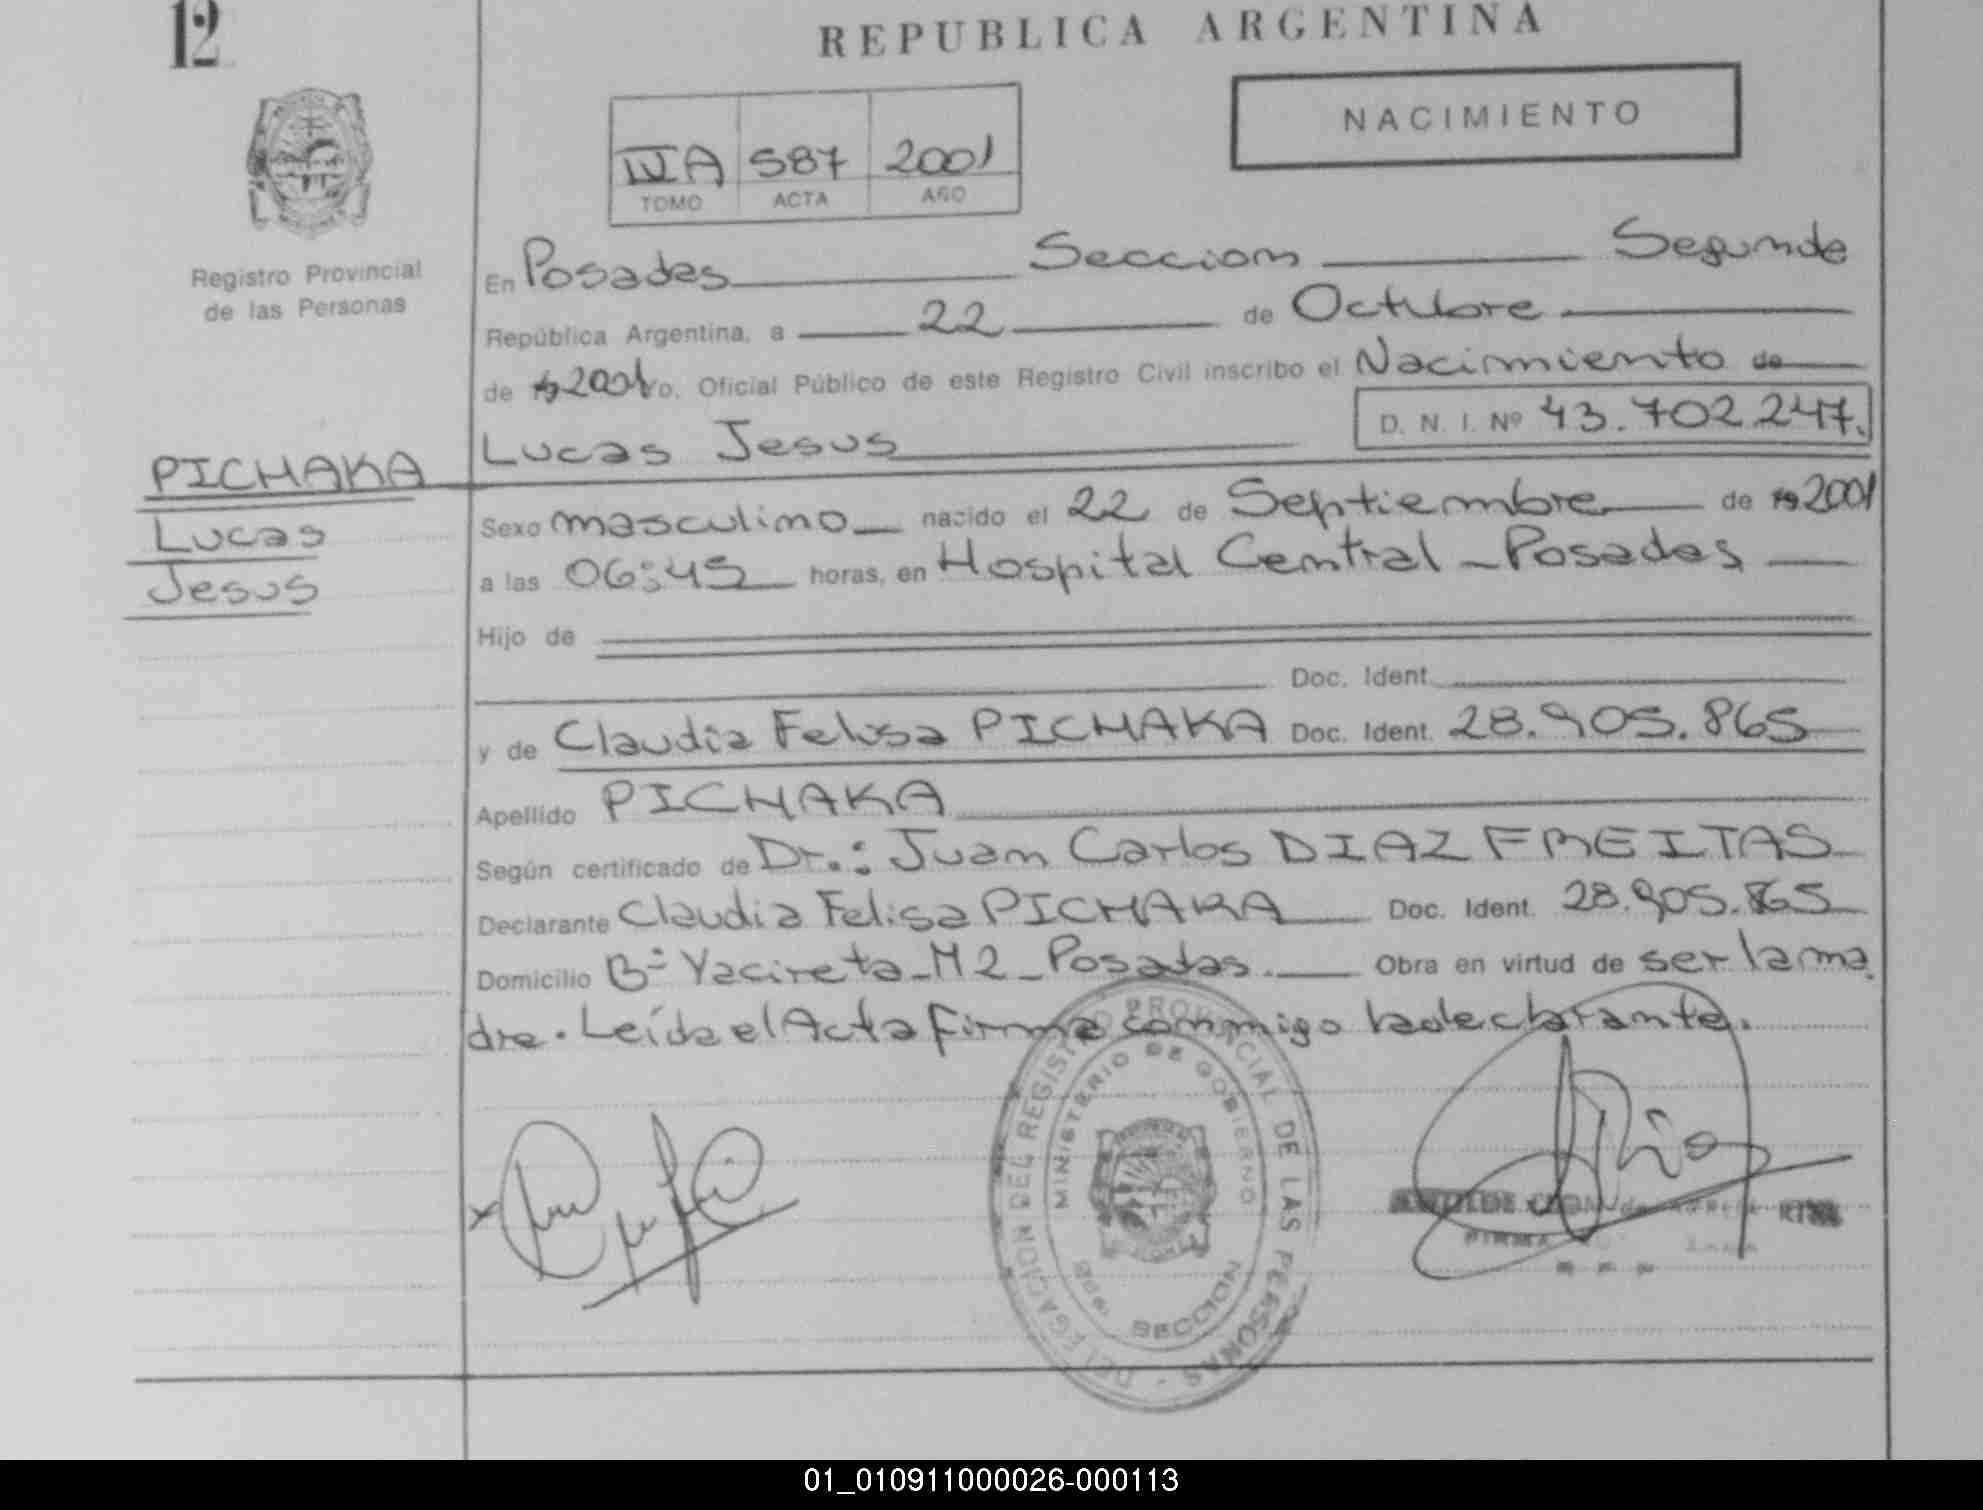 12
REPUBLICA ARGENTINA
NACIMIENTO
IVA 587 2001
TOMO ACTA AÑO
Registro Provincial
de las Personas
En Posadas Seccion Segunda
República Argentina, a 22 de Octubre
de 192001 Yo, Oficial Público de este Registro Civil inscribo el Nacimiento de
Lucas Jesus D. N. I. Nº 43.702.247.
PICHAKA
Lucas
Jesus
Sexo masculino nacido el 22 de Septiembre de 192001
a las 06:45 horas, en Hospital Central - Posadas
Hijo de
Doc. Ident.
y de Claudia Felisa PICHAKA Doc. Ident. 28.905.865
Apellido PICHAKA
Según certificado de Dr.: Juan Carlos DIAZ FREITAS
Declarante Claudia Felisa PICHAKA Doc. Ident. 28.905.865
Domicilio Bº Yacireta - M2 - Posadas. Obra en virtud de ser la ma
dre. Leída el Acta firma conmigo la declarante.
DELEGACION DEL REGISTRO PROVINCIAL DE LAS PERSONAS -
MINISTERIO DE GOBIERNO
SECCION
FIRMA
01_010911000026-000113